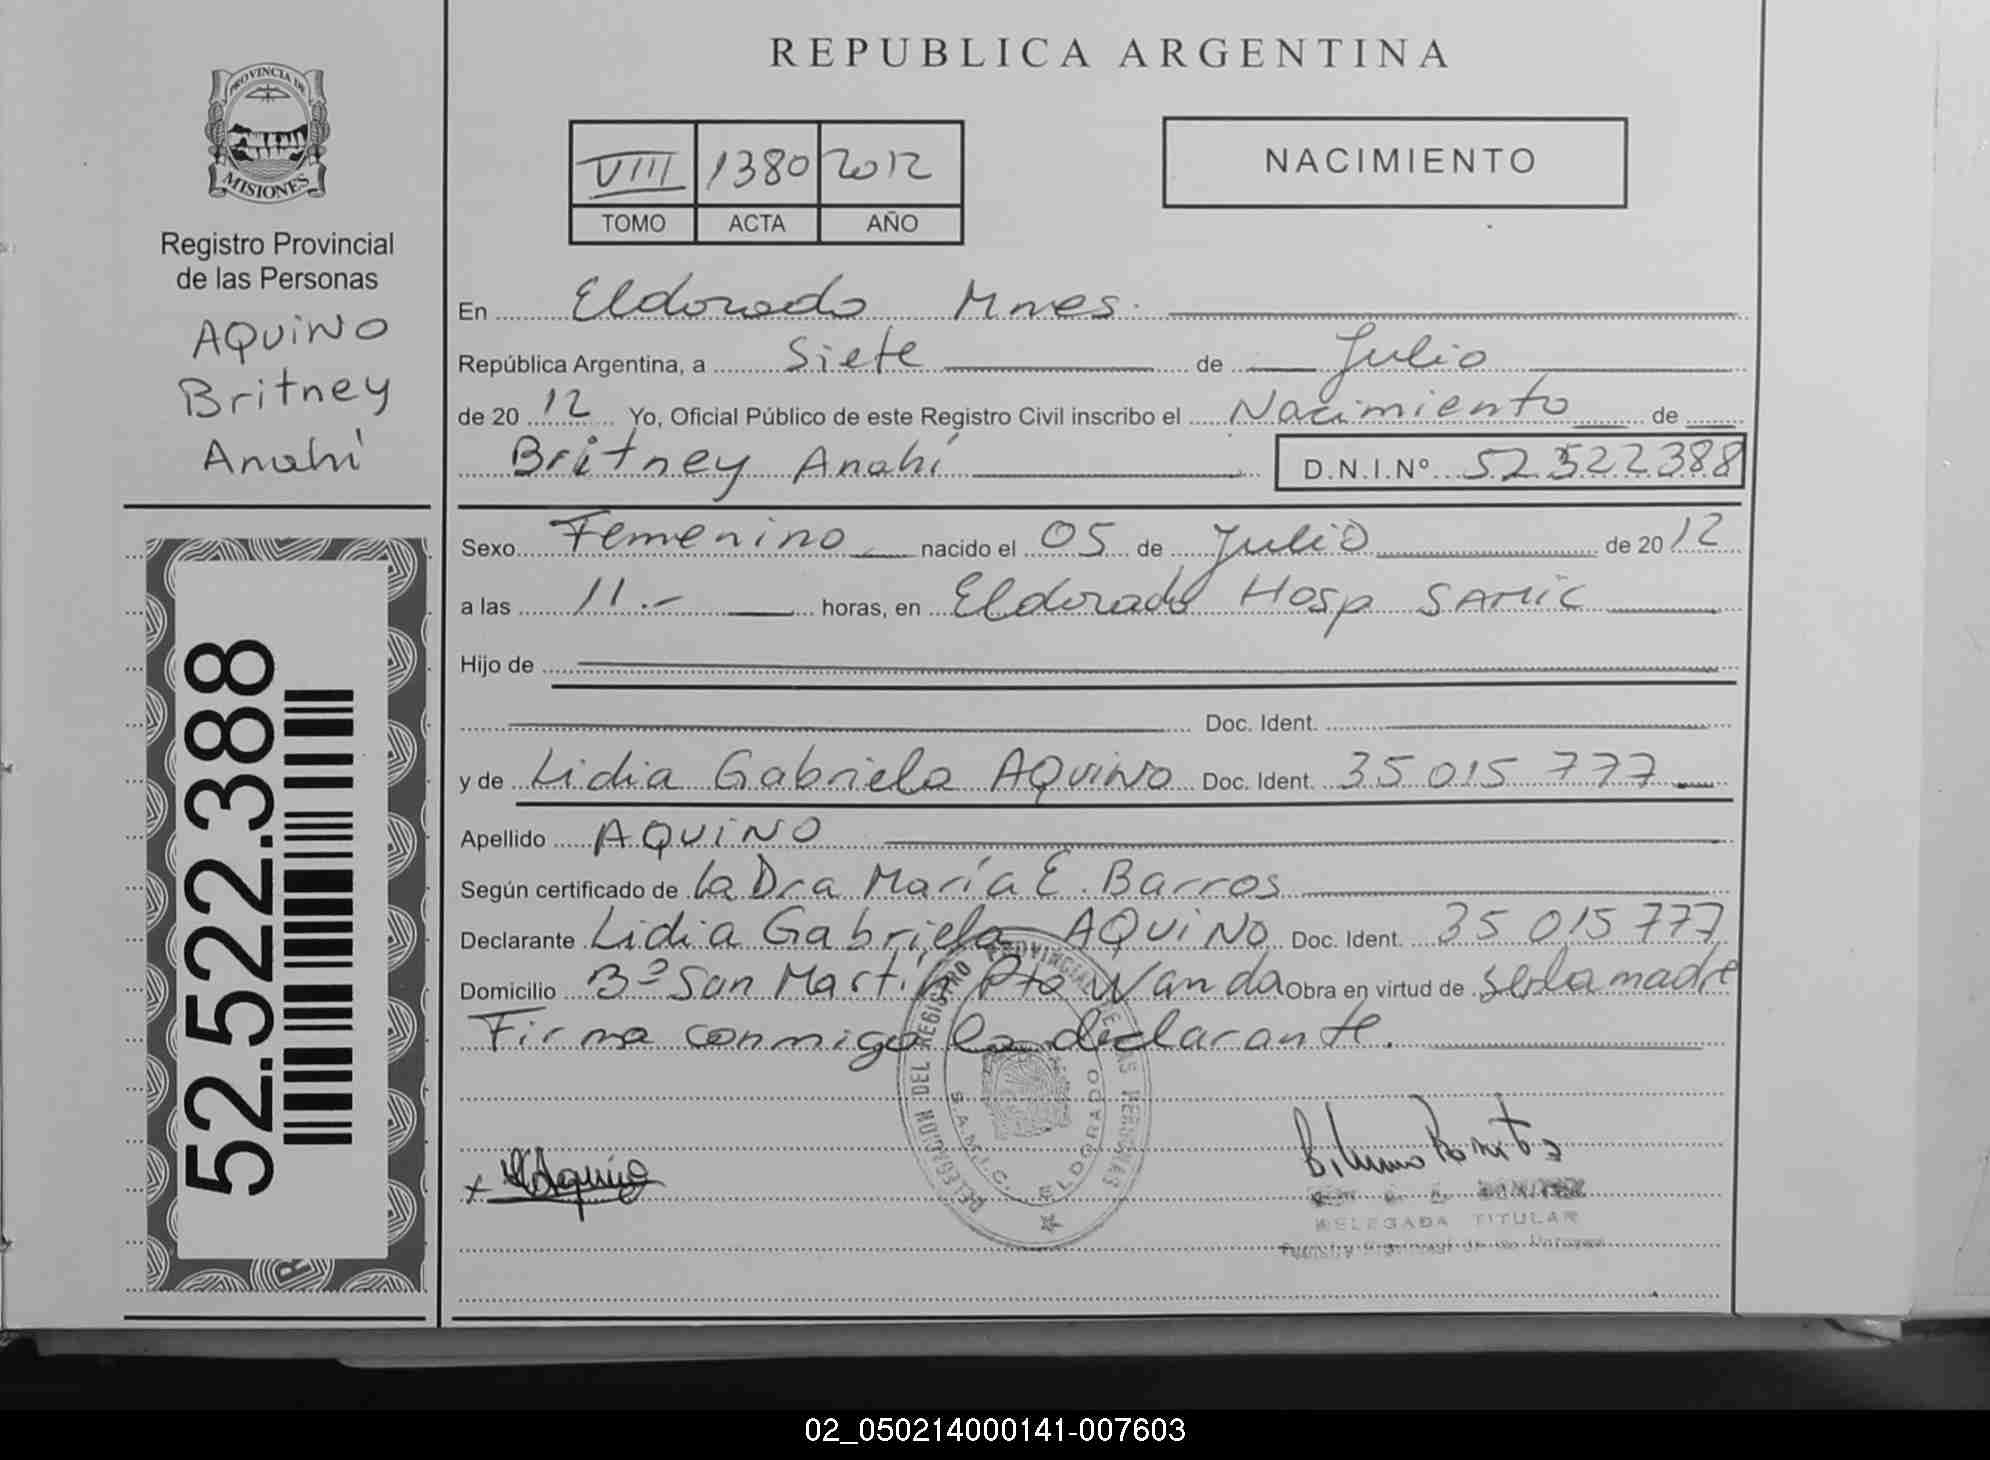 REPUBLICA ARGENTINA
PROVINCIA DE
MISIONES
Registro Provincial
de las Personas
AQUINO
Britney
Anahí
52.522.388
VIII 1380 2012
TOMO ACTA AÑO
NACIMIENTO
En Eldorado Mnes.
República Argentina, a Siete de Julio
de 2012 Yo, Oficial Público de este Registro Civil inscribo el Nacimiento de
Britney Anahí D.N.I.Nº 52522388
Sexo Femenino nacido el 05 de Julio de 2012
a las 11.- horas, en Eldorado Hosp SAMIC
Hijo de
Doc. Ident.
y de Lidia Gabriela AQUINO Doc. Ident. 35 015 777
Apellido AQUINO
Según certificado de la Dra María E. Barros
Declarante Lidia Gabriela AQUINO Doc. Ident. 35 015 777
Domicilio Bº San Martín Pto Wanda Obra en virtud de ser la madre
Firma conmigo la declarante.
DELEGACION DEL REGISTRO PROVINCIAL DE LAS PERSONAS
S.A.M.I.C. ELDORADO
DELEGADA TITULAR
Registro Provincial de las Personas
02_050214000141-007603